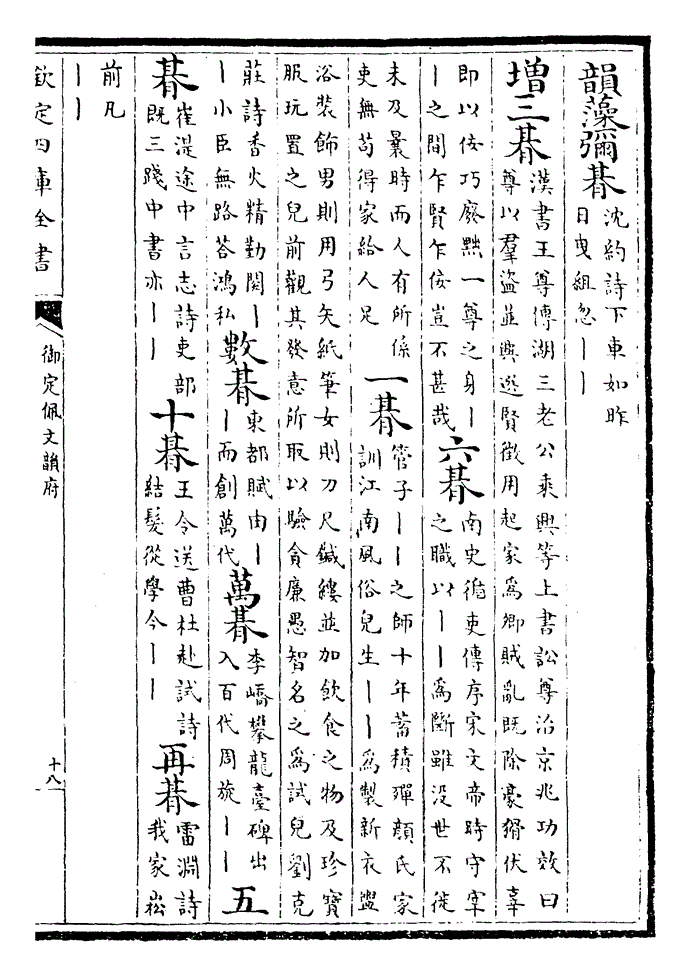 韻藻彌朞
沈約詩下車如昨
日曳組忽丨丨
增三朞
漢書王尊傳湖三老公乘興等上書訟尊治京兆功效曰
尊以羣盗並興選賢徴用起家為卿賊亂既除豪猾伏辜
即以佞巧廢黜一尊之身丨
丨之間乍賢乍佞豈不甚哉
六朞
南史循吏傳序宋文帝時守宰
之職以丨丨為斷雖没世不徙
未及曩時而人有所係
吏無苟得家給人足
一朞
管子丨丨之師十年蓄積殫顔氏家
訓江南風俗兒生丨丨為製新衣盥
浴裝飾男則用弓矢紙筆女則刀尺鍼縷並加飲食之物及珍寶
服玩置之兒前觀其發意所取以驗貪廉愚智名之為試兒劉克
莊詩香火精勤閱丨
丨小臣無路荅鴻私
數朞
東都賦由丨
丨而創萬代
萬朞
李嶠攀龍臺碑出
入百代周旋丨丨
五
朞
崔湜途中言志詩吏部
既三踐中書亦丨丨
十朞
王令送曹杜赴試詩
結髮從學今丨丨
再朞
雷淵詩
我家崧
前凡
丨丨
欽定四庫全書
御定佩文韻府
十八